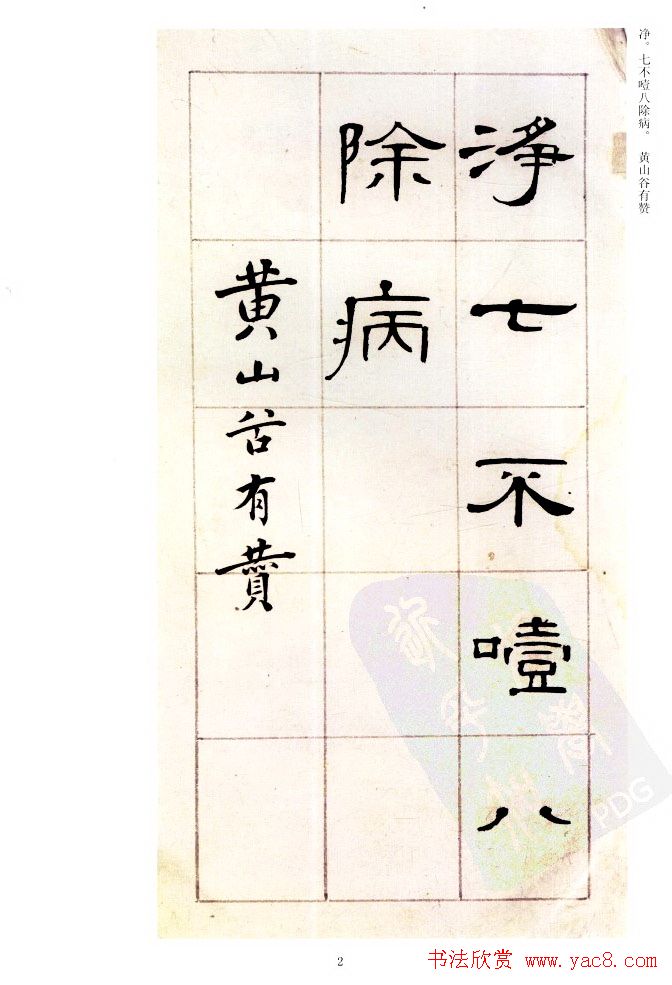 净。七不噎八除病。 黄山谷有赞
淨七不噎八
除病
黄山谷有賛
2
书法欣赏 www.yac8.com
PDG